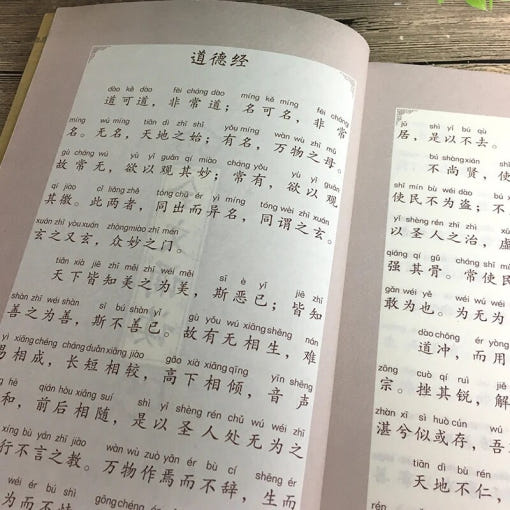 道德经
dào kě dào fēi cháng dào míng kě míng fēi cháng
道可道，非常道；名可名，非常
míng wú míng tiān dì zhī shǐ yǒu míng wàn wù zhī mǔ
名。无名，天地之始；有名，万物之母。
gù cháng wú yù yǐ guān qí miào cháng yǒu yù yǐ guān
故常无，欲以观其妙；常有，欲以观
qí jiào cǐ liǎng zhě tóng chū ér yì míng tóng wèi zhī xuán
其徼。此两者，同出而异名，同谓之玄。
xuán zhī yòu xuán zhòng miào zhī mén
玄之又玄，众妙之门。
tiān xià jiē zhī měi zhī wéi měi sī è yǐ jiē zhī
天下皆知美之为美，斯恶已；皆知
shàn zhī wéi shàn sī bú shàn yǐ gù yǒu wú xiāng shēng nán
善之为善，斯不善已。故有无相生，难
yì xiāng chéng cháng duǎn xiāng jiào gāo xià xiāng qīng yīn shēng
易相成，长短相较，高下相倾，音声
hè qián hòu xiāng suí shì yǐ shèng rén chǔ wú wéi zhī
和，前后相随，是以圣人处无为之
xíng bù yán zhī jiào wàn wù zuò yān ér bù cí shēng ér
行不言之教。万物作焉而不辞，生而
wéi ér bú shì gōng chéng
为而不恃，
jū shì yǐ bú qù
居，是以不去。
bú shàng xián
不尚贤，使
shǐ mín bù wéi dào
使民不为盗；不
yǐ shèng rén zhī zhì
以圣人之治，虚
qiáng qí gǔ cháng shǐ mín
强其骨。常使民
gǎn wéi yě wéi wú wéi
敢为也。为无为
dào chōng ér yòng
道冲，而用
zōng cuò qí ruì jiě
宗。挫其锐，解
zhàn xī sì huò cún wú
湛兮似或存，吾
tiān dì bù rén
天地不仁，